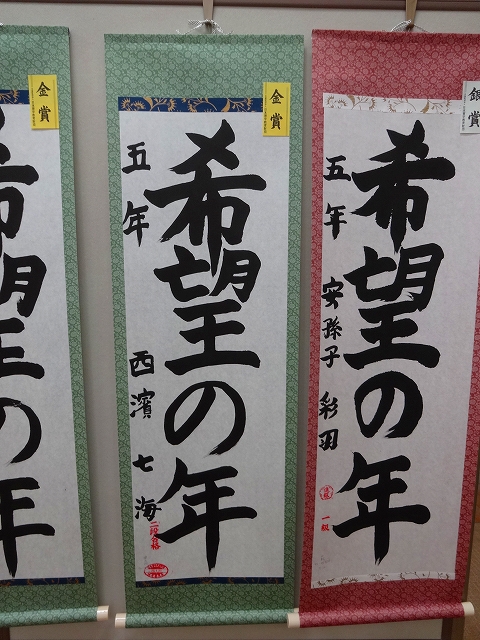 銀賞
希望の年
五年 安孫子 彩羽
一級
金賞
希望の年
五年 西濱 七海
二段合格
金賞
希望の年